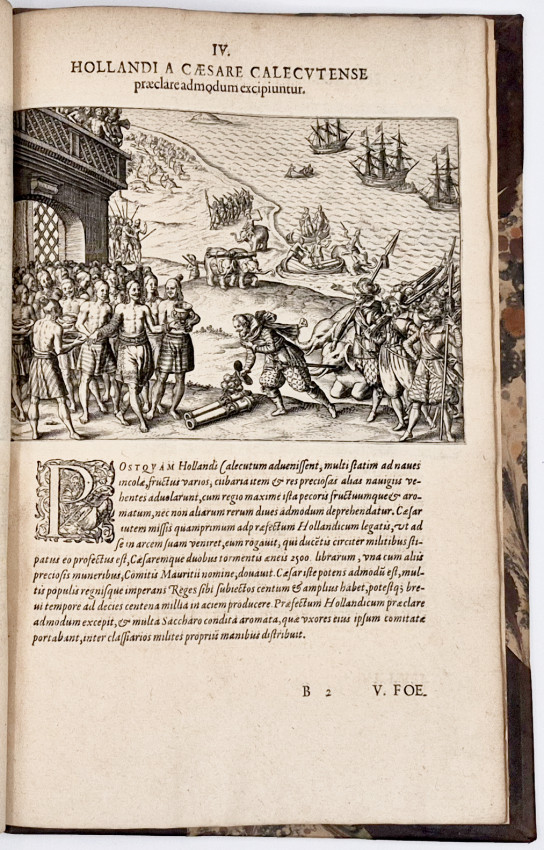 IV.
HOLLANDI A CÆSARE CALECVTENSE
præclare admodum excipiuntur.
POSTQVAM Hollandi Calecutum aduenissent, multi statim ad naues
incolæ, fructus varios, cibaria item & res preciosas alias nauigiis ve-
hentes aduolarunt, cum regio maxime ista pecoris fructuumque & aro-
matum, nec non aliarum rerum diues admodum deprehendatur. Cæsar
autem missis quamprimum adp ræfectum Hollandicum legatis, vt ad
se in arcem suam veniret, eum rogauit, qui ducētis circiter militibus sti-
patus eo profectus est, Cæsaremque duobus tormentis æneis 2500. librarum, vna cum aliis
preciosis muneribus, Comitis Mauritii nomine, donauit. Cæsar iste potens admodū est, mul-
tis populis regnisque imperans Reges sibi subiectos centum & amplius habet, potestq́; bre-
ui tempore ad decies centena millia in aciem producere. Præfectum Hollandicum præclare
admodum excepit, & multa Saccharo condita aromata, quæ vxores eius ipsum comitatæ
portabant, inter classiarios milites propriis manibus distribuit.
B 2 V. FOE-